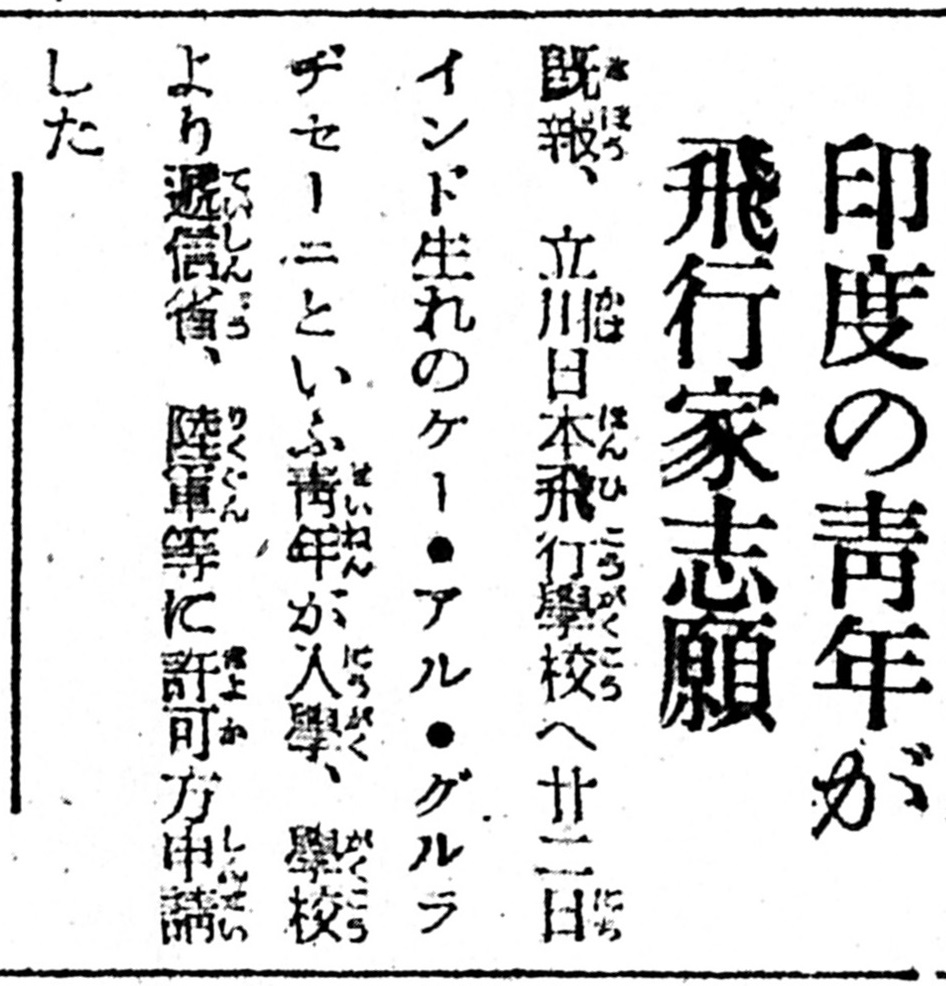 印度の靑年が
飛行家志願
旣報、立川日本飛行學校へ廿二日
インド生れのケー●アル●グルラ
ヂセーニといふ靑年が入學、學校
より遞信省、陸軍等に許可方申請
した